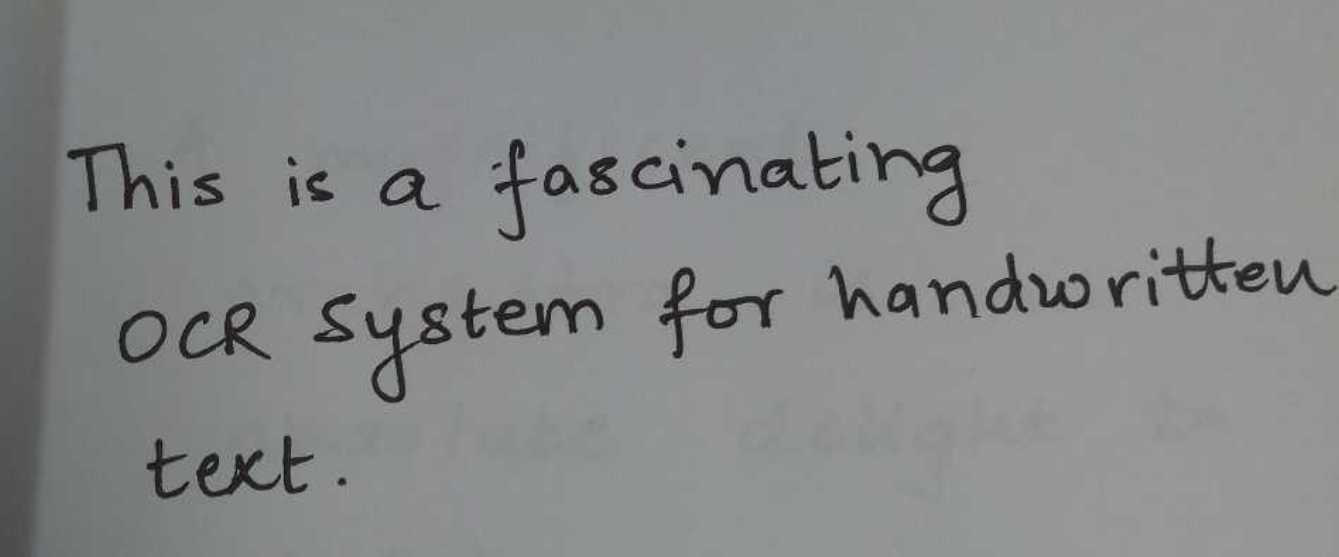 This is a fascinating
OCR System for handwritten
text.